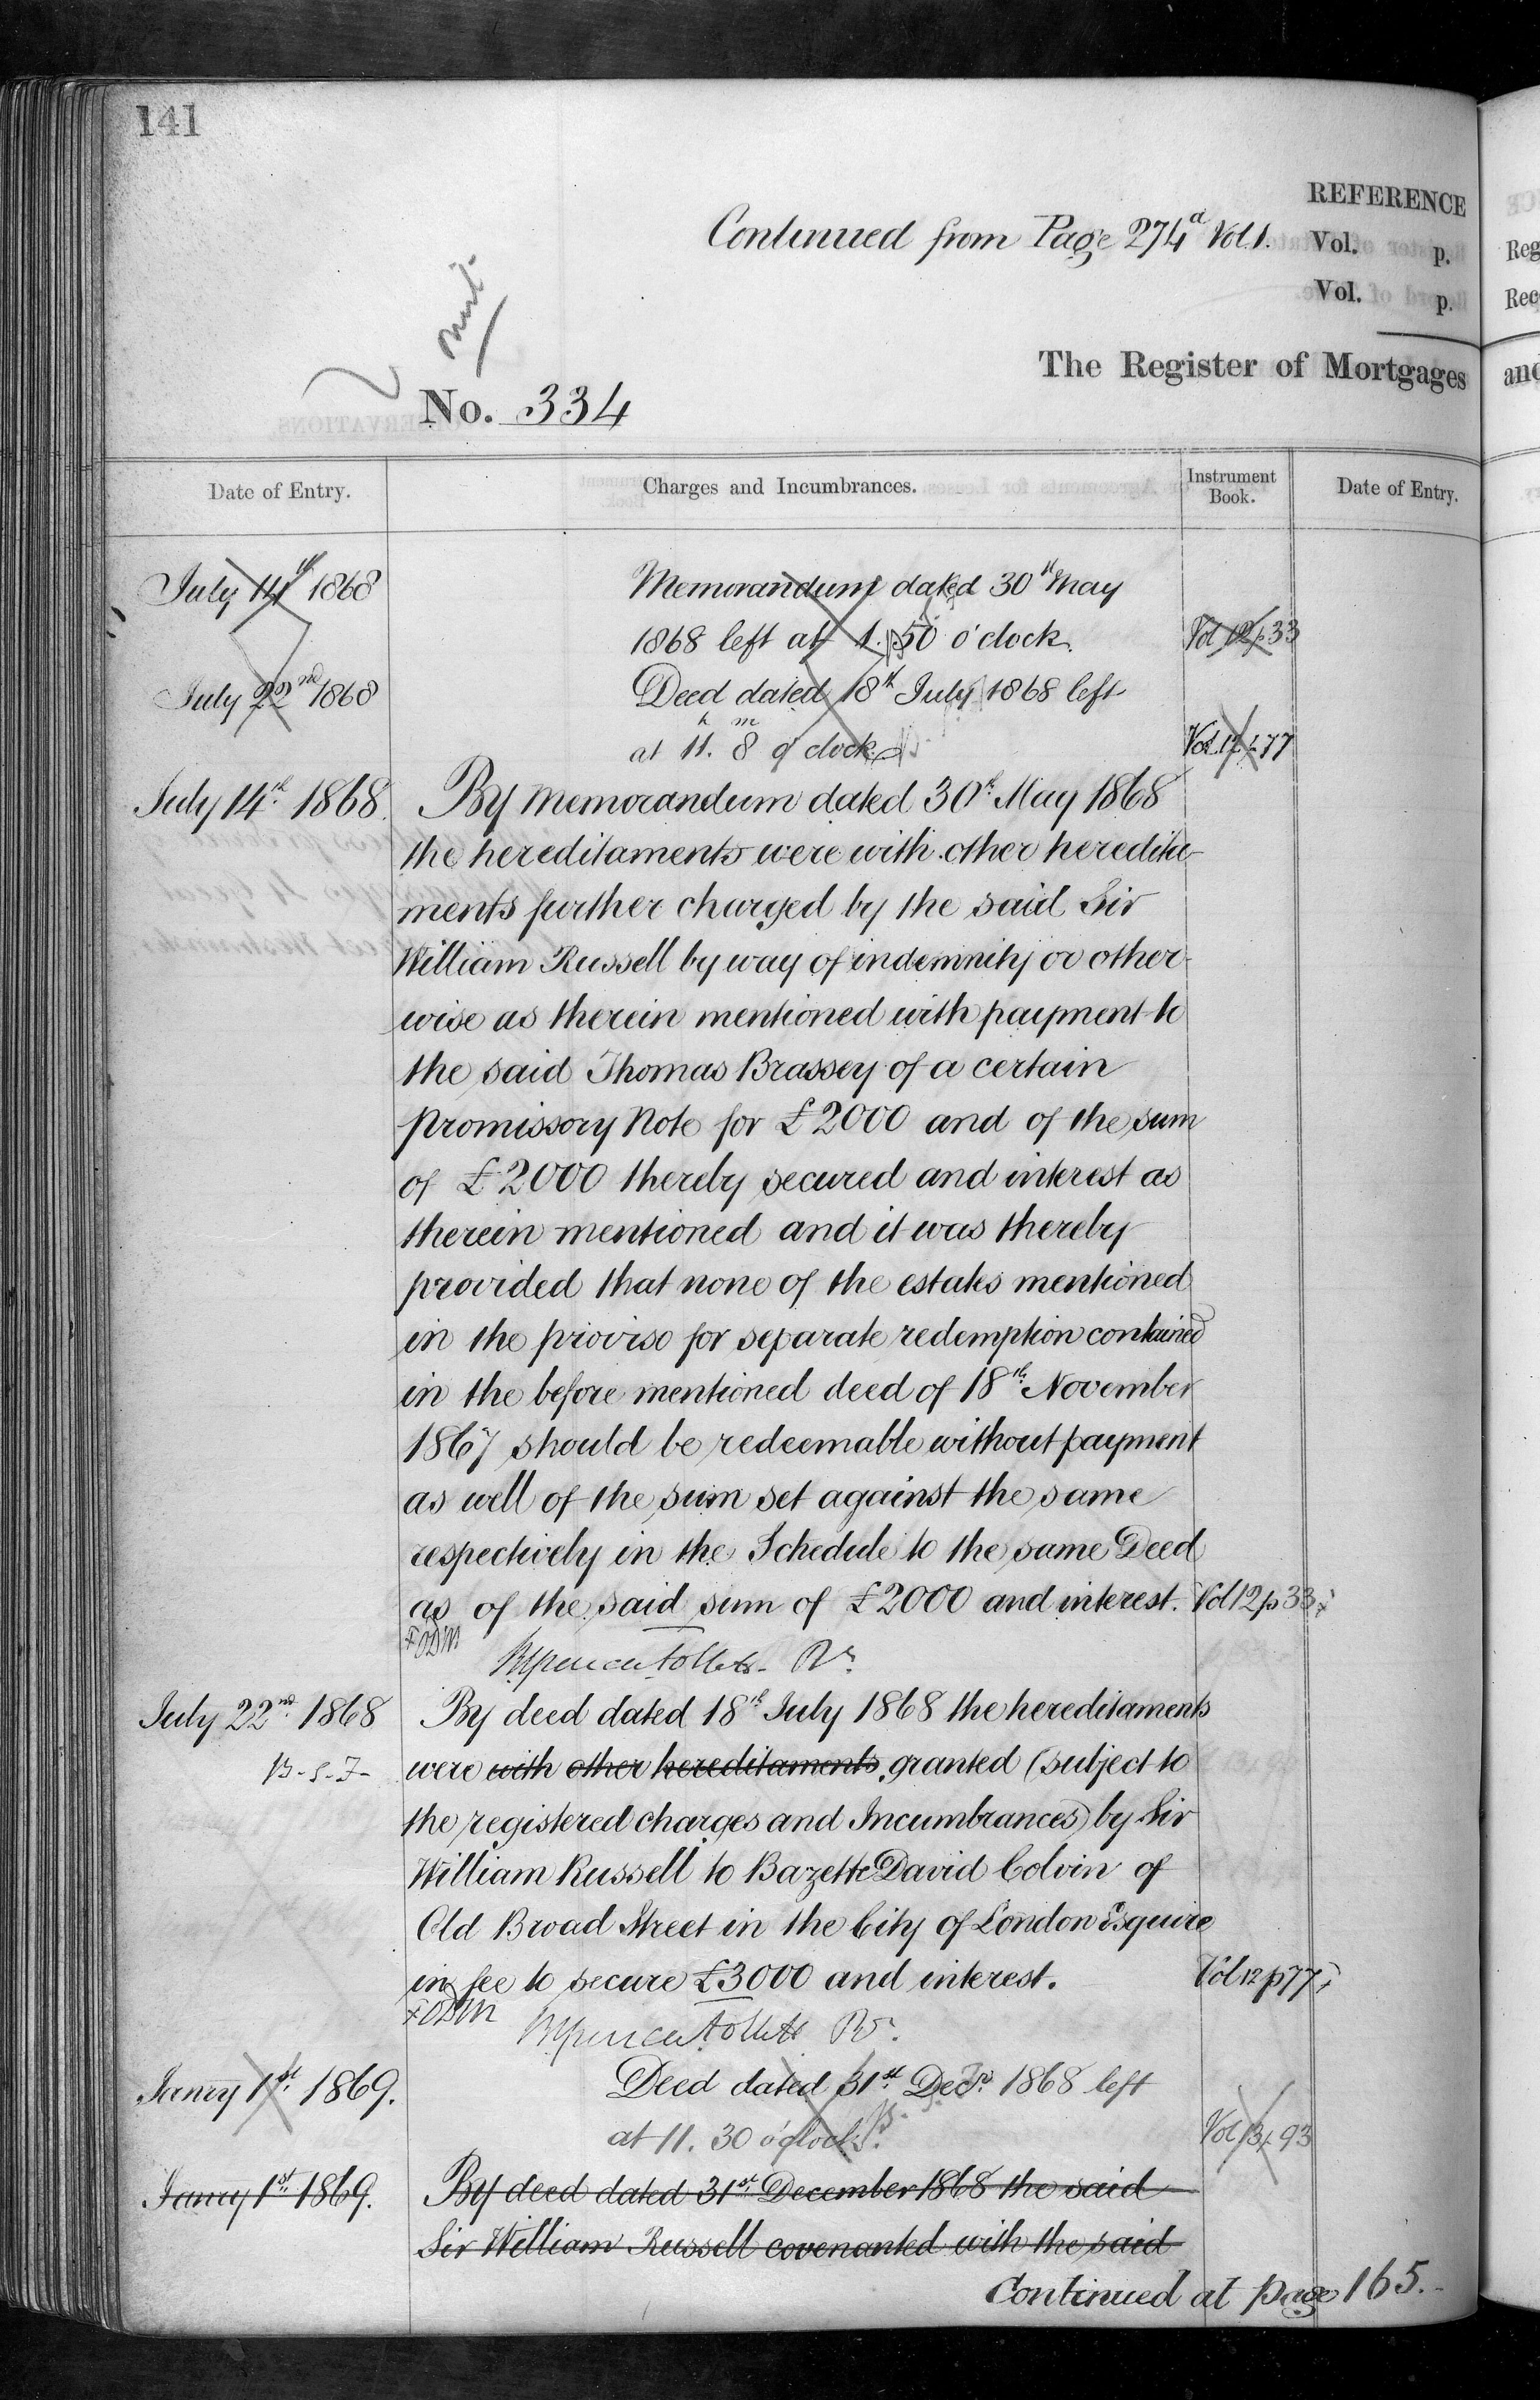 141
REFERENCE
Continued from Page 274a Vol. 1.
Vol. p.
Vol. p.
The Register of Mortgages
No. 334
Date of Entry.
Charges and Incumbrances.
Instrument Book.
Date of Entry.
July 14th 1868
Memorandum dated 30th May
1868 left at 1. 50 o'clock.
Vol 12 p 33
July 22nd 1868
Deed dated 18th July 1868 left
at 11.h 8m o'clock
Vol. 12 p 77
July 14th 1868.
By memorandum dated 30th May 1868
the hereditaments were with other heredita-
ments further charged by the said Sir
William Russell by way of indemnity or other-
wise as therein mentioned with payment to
the said Thomas Brassey of a certain
promissory Note for £2000 and of the sum
of £2000 thereby secured and interest as
therein mentioned and it was thereby
provided that none of the estates mentioned
in the proviso for separate redemption contained
in the before mentioned deed of 18th November
1867 should be redeemable without payment
as well of the sum set against the same
respectively in the Schedule to the same Deed
as of the said sum of £2000 and interest.
Vol 12 p 33 x
July 22nd 1868
By deed dated 18th July 1868 the hereditaments
B-S-F-
were with other hereditaments, granted (subject to
the registered charges and Incumbrances) by Sir
William Russell to Bazett David Colvin of
Old Broad Street in the City of London Esquire
in fee to secure £3000 and interest.
Vol 12 p 77 x
Janry 1st 1869.
Deed dated 31st Decr. 1868 left
at 11. 30 o'clock.
Vol 13 p 93
Janry 1st 1869.
By deed dated 31st December 1868 the said
Sir William Russell covenanted with the said
Continued at page 165.
Reg
Rec
and